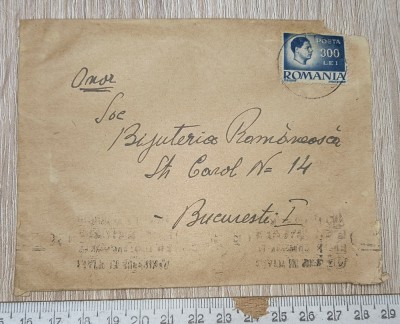 POSTA
300
LEI
ROMANIA
Onor
Soc
Bijuteria Românească
Str Carol No 14
- Bucuresti I
1 2 3 4 5 6 7 8 9 10 11 12 13 14 15 16 17 18 19 20 21 22 23 24 25 26 27 28 29